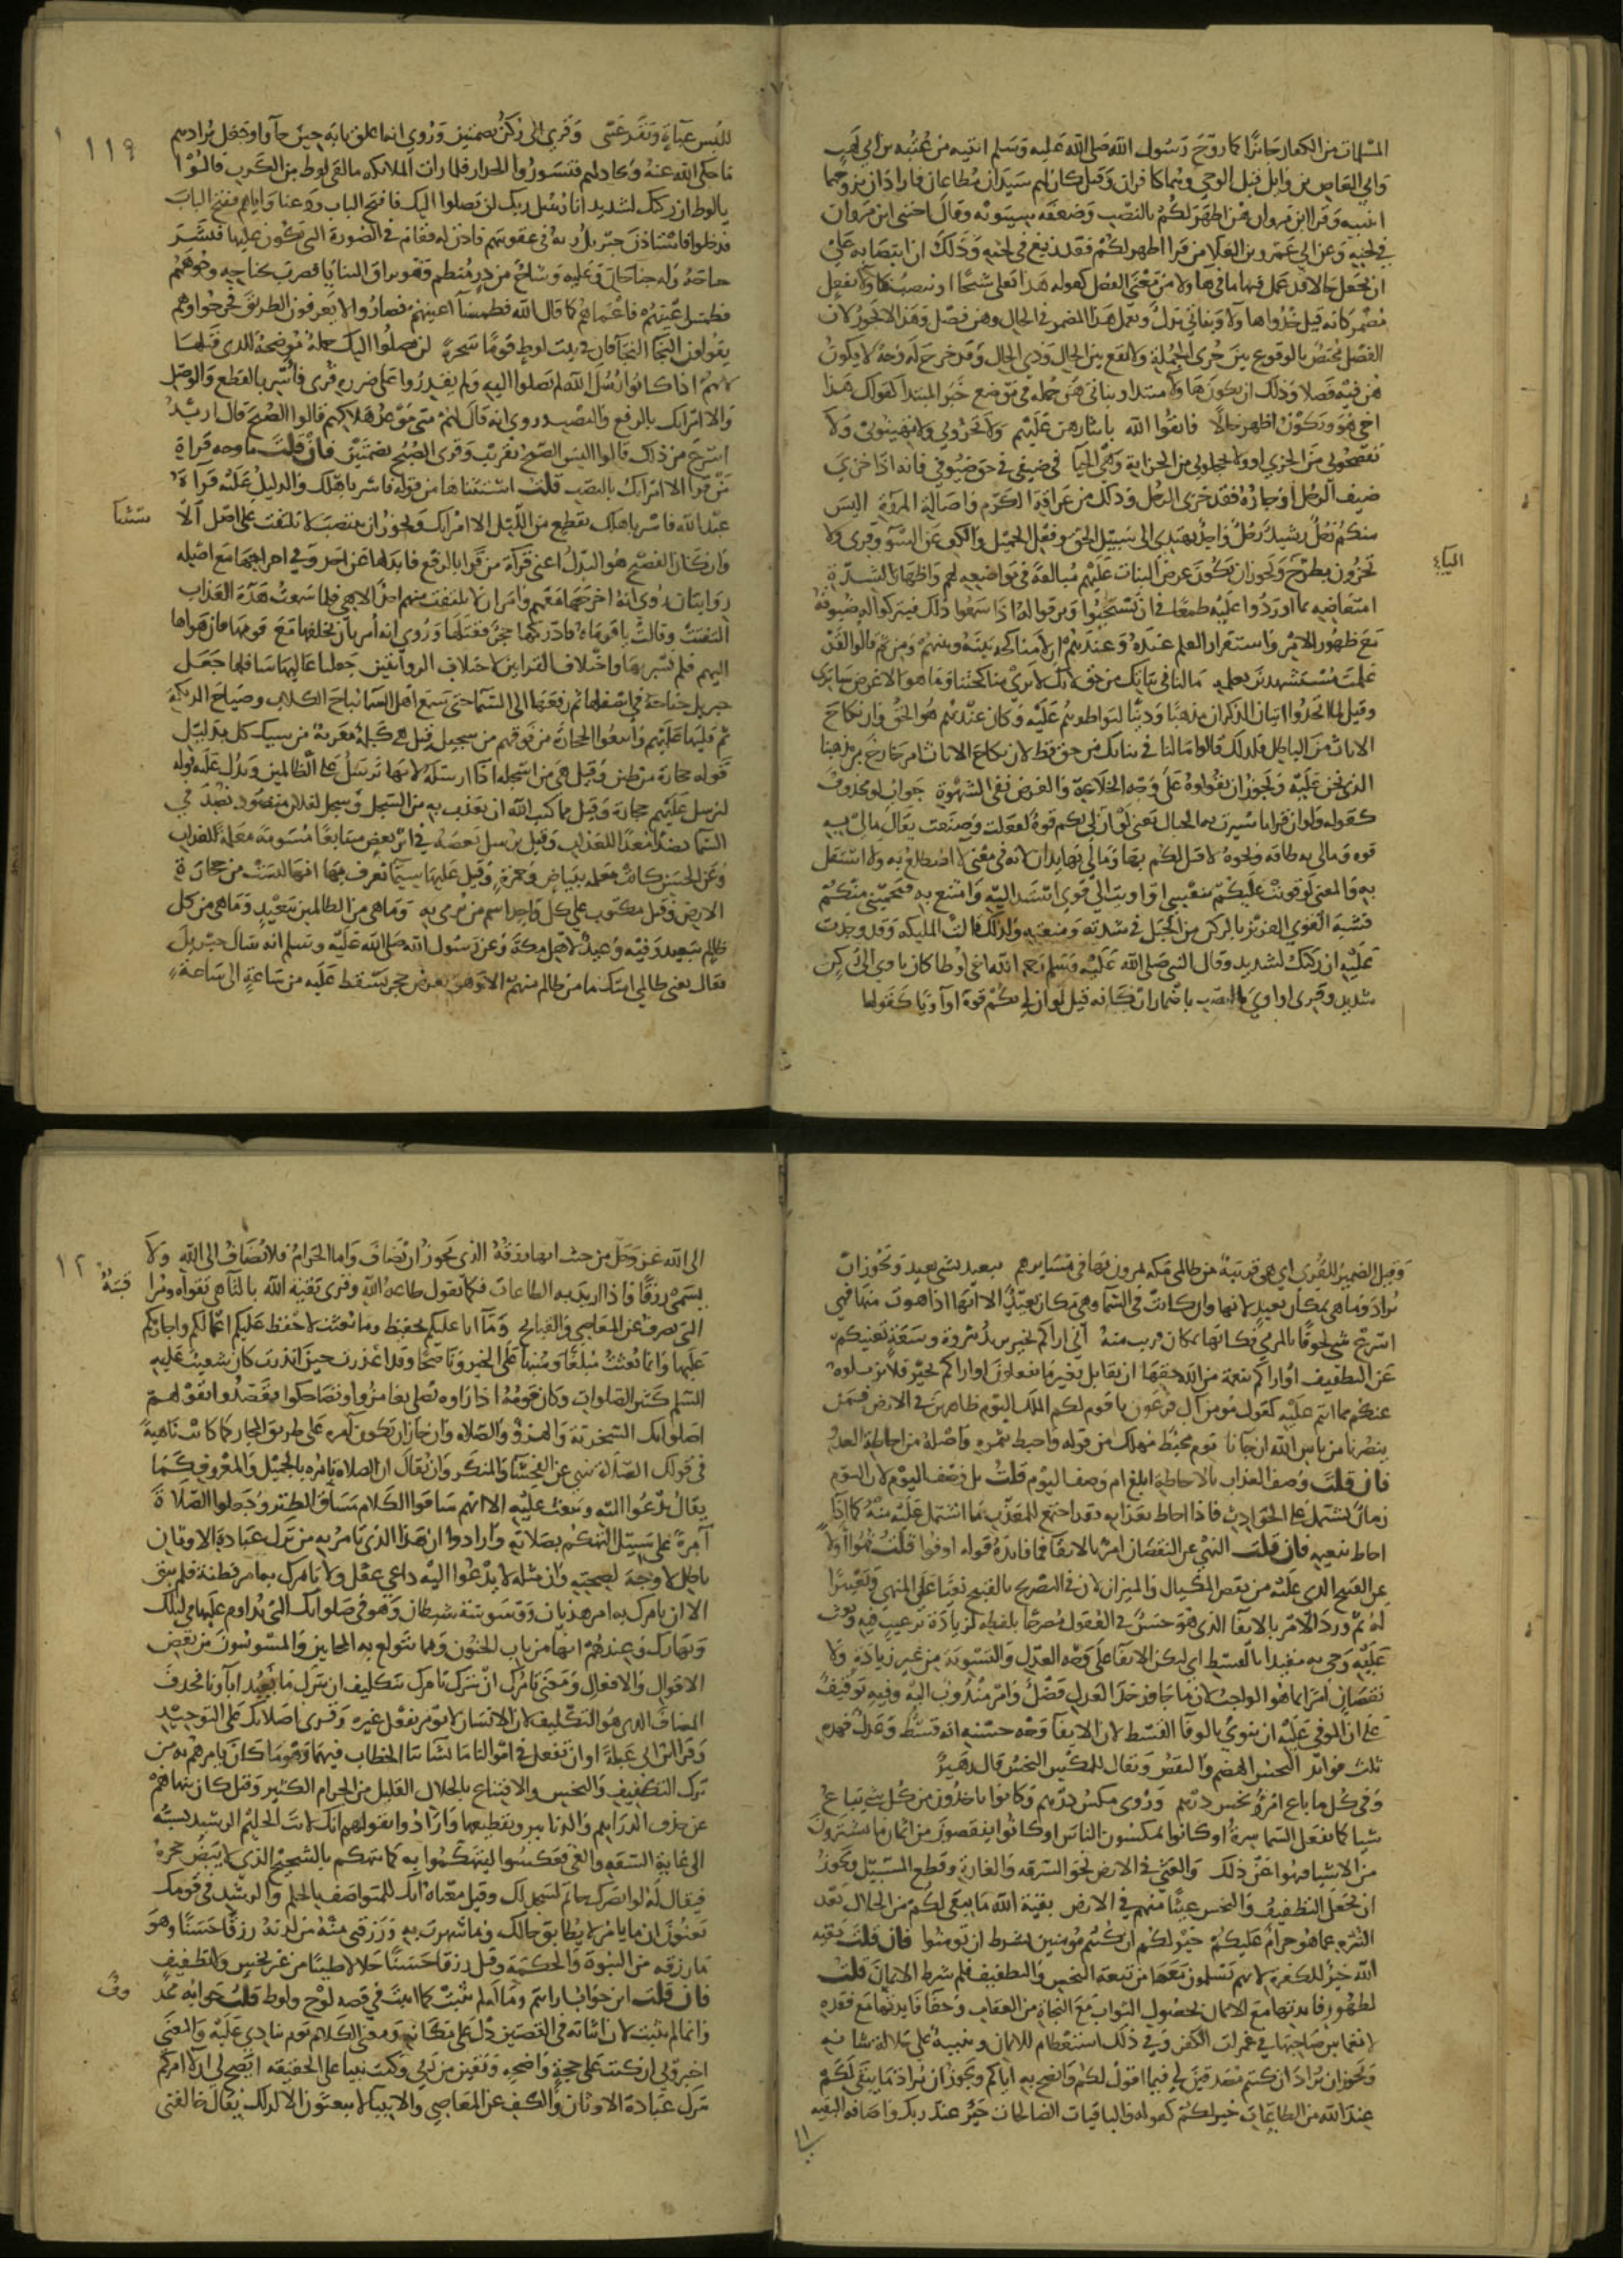 المسلمات من الكفار جائزا كما زوج رسول الله صلى الله عليه وسلم ابنتيه من عتبه بن ابي لهب
وابي العاص بن وايل قبل الوحي وهما كافران وقيل كان لهم سيدان مطاعان فاراد ان يزوجهما
ابنتيه وقرا ابن مروان هن اطهر لكم بالنصب وضعفه سيبويه وقال احتبى ابن مروان
في لحنه وعن ابي عمرو بن العلا من قرا اطهر لكم فقد تربع في لحنه وذلك ان انتصابه على
ان يجعل حالا قد عمل فيها ما في هاولا من معنى الفعل كقوله هذا بعلي شيخا او ينصب هاولا بفعل
مضمر كانه قيل خذوا هاولا وبناتي بدل ويعمل هذا المضمر في الحال وهن فصل وهذا لا يجوز لان
الفصل مختص بالوقوع بين جزى الجملة ولا يقع بين الحال وذي الحال وقد خرج له وجه لا يكون
هن فيه فصلا وذلك ان يكون هاولا مبتدا وبناتي هن جمله في موضع خبر المبتدا كقولك هذا
اخي هو ويكون اطهر حالا فاتقوا الله بايثارهن عليهم ولا تخزوني ولا تهينوني ولا
تفضحوني من الخزي او ولا تخجلوني من الخزاية وهي الحيا في ضيفي في حق ضيوفي فانه اذا خزي
ضيف الرجل او جاره فقد خزى الرجل وذلك من عراقة الكرم واصالة المروة اليس
منكم رجل رشيد رجل واحد يهتدى الى سبيل الحق وفعل الجميل والكف عن السوء وقرى ولا
تخزون بطرح ويجوز ان يكون عرض البنات عليهم مبالغة في تواضعه لهم واظهارا لشدة
الياء
امتعاضه مما اوردوا عليه طمعا في ان يستحيوا ويرقوا له اذا سمعوا ذلك فيتركوا له ضيوفه
مع ظهور الامر واستقرار العلم عنده وعندهم ان لا مناكحه بينه وبينهم ومن ثم قالوا لقد
علمت مستشهدين بعلمه مالنا في بناتك من حق لانك لا ترى مناكحتنا وما هو الا عرض سابرى
وقيل لما اتخذوا اتيان الذكران مذهبا ودينا لتواطوهم عليه وكان عندهم هو الحق وان نكاح
الاناث من الباطل فلذلك قالوا مالنا في بناتك من حق قط لان نكاح الاناث امر خارج من مذهبنا
الذي نحن عليه ويجوز ان يقولوه على وجه الخلاعة والغرض نفى الشهوة جواب لو محذوف
كقوله ولو ان قرانا سيرت به الجبال يعني لو ان لي بكم قوة لفعلت وصنعت يقال مالي به
قوه ومالي به طاقه ونحوه لا قبل لكم بها ومالي بها يدان لانه في معنى لا اضطلع به ولا استقل
به والمعنى لو قويت عليكم بنفسي او اويت الى قوى استند اليه وامتنع به فيحميني منكم
فشبه القوي العزيز بالركن من الجبل في شدته ومنعته ولذلك قالت المليكه وقد وجدت
عليه ان ركنك لشديد وقال النبي صلى الله عليه وسلم رحم الله اخي لوطا كان ياوي الى ركن
شديد وقرى او اوي بالنصب باضمار ان كانه قيل لو ان لي بكم قوة او اويا كقولها
للبس عباءة وتقر عيني وقري الى ركن بضمتين وروي انه اغلق بابه حين جاؤا وجعل يرادهم
ما حكى الله عنه ويجادلهم فتسوروا الجدار فلما رات الملائكه ما لقي لوط من الكرب قالوا
١١٩
يا لوط ان ركنك لشديد انا رسل ربك لن يصلوا اليك فافتح الباب ودعنا واياهم ففتح الباب
فدخلوا فاستاذن جبريل ربه في عقوبتهم فاذن له فقام في الصورة التي يكون عليها فنشر
جناحه وله جناحان وعليه وشاح من در منظوم وهو براق الثنايا فضرب بجناحه وجوههم
فطمس اعينهم فاعماهم كما قال الله فطمسنا اعينهم فصاروا لا يعرفون الطريق فخرجوا وهم
يقولون النجا النجا فان في بيت لوط قوما سحرة لن يصلوا اليك جملة موضحة للذي قبلها
لانهم اذا كانوا رسل الله لم يصلوا اليه ولم يقدروا على ضرره قرى فاسر بالقطع والوصل
والا امراتك بالرفع والنصب وروي انه قال لهم متى موعد هلاكهم قالوا الصبح قال اريد
اسرع من ذلك قالوا اليس الصبح بقريب وقرى الصبح بضمتين فان قلت ما وجه قراة
من قرا الا امراتك بالنصب قلت استثناها من قوله فاسر باهلك والدليل عليه قراءة
عبد الله فاسر باهلك بقطع من الليل الا امراتك ويجوز ان ينتصب بلا يلتفت على اصل الا
ستثنا
وان كان الفصيح هو البدل اعني قراءة من قرا بالرفع فابدلها عن احد وفي اخراجها مع اهله
روايتان روي انه اخرجها معهم وامر ان لا يلتفت منهم احد الا هي فلما سمعت هدة العذاب
التفتت وقالت يا قوماه فادركها حجر فقتلها وروي انه امر بان يخلفها مع قومها فان هواها
اليهم فلم يسر بها واختلاف القرائتين لاختلاف الروايتين جعلنا عاليها سافلها جعل
جبريل جناحه في اسفلها ثم رفعها الى السما حتى سمع اهل السما نباح الكلاب وصياح الديكة
ثم قلبها عليهم واتبعوا الحجارة من فوقهم من سجيل قيل هي كلمة معربة من سنك كل بدليل
قوله حجارة من طين وقيل هي من اسجله اذا ارسله لانها ترسل على الظالمين ويدل عليه قوله
لنرسل عليهم حجارة وقيل مما كتب الله ان يعذب به من السجل وسجل لفلان منضود نضد في
السما نضدا معدا للعذاب وقيل يرسل بعضه في اثر بعض متتابعا مسومة معلمة للعذاب
وعن الحسن كانت معلمه ببياض وحمرة وقيل عليها سيما تعرف بها انها ليست من حجارة
الارض وقيل مكتوب على كل واحد اسم من يرمى به وما هي من الظالمين ببعيد وما هي من كل
ظالم ببعيد وفيه وعيد لاهل مكة وعن رسول الله صلى الله عليه وسلم انه سال جبريل
فقال يعني ظالمي امتك ما من ظالم منهم الا وهو بعرض حجر يسقط عليه من ساعة الى ساعة
وقيل الضمير للقرى اي هي قريبة من ظالمي مكه يمرون بها في مسايرهم ببعيد بشي بعيد ويجوز ان
يراد وما هي بمكان بعيد لانها وان كانت في السما وهي مكان بعيد الا انها اذا هوت منها فهي
اسرع شي لحوقا بالمرمي فكانها بمكان قريب منه اني اراكم بخير يريد بثروة وسعة تغنيكم
عن التطفيف او اراكم بنعمة من الله حقها ان تقابل بغير ما تفعلون او اراكم بخير فلا تزيلوه
عنكم بما انتم عليه كقول مومن ال فرعون يا قوم لكم الملك اليوم ظاهرين في الارض فمن
ينصرنا من باس الله ان جانا يوم محيط مهلك من قوله واحيط بثمره واصله من احاطة العدو
فان قلت وصف العذاب بالاحاطة ابلغ ام وصف اليوم قلت بل وصف اليوم لان اليوم
زمان يشتمل على الحوادث فاذا احاط بعذابه فقد اجتمع للمعذب ما اشتمل عليه منه كما اذا
احاط بنعيمه فان قلت النهي عن النقصان امر بالايفا فما فائدة قوله اوفوا قلت نهوا اولا
عن القبيح الذي عليه من نقص المكيال والميزان لان في التصريح بالقبيح نعيا على المنهى وتعييرا
له ثم ورد الامر بالايفا الذي هو حسن في العقول مصرحا بلفظه لزيادة ترغيب فيه وبعث
عليه وجي به مقيدا بالقسط اي ليكن الايفا على وجه العدل والتسوية من غير زيادة ولا
نقصان امرا بما هو الواجب لان ما جاوز حد العدل فضل وامر مندوب اليه وفيه توقيف
على ان الموفي عليه ان ينوي بالوفا القسط لان الايفا وجه حسنه انه قسط وعدل فهذه
ثلث فوائد البخس الهضم والنقص ويقال للمكس البخس قال زهير
وفي كل ما باع امرؤ بخس درهم وروى مكس درهم وكانوا ياخذون من كل شي يباع
شيا كما يفعل السماسرة او كانوا يمكسون الناس او كانوا ينقصون من اثمان ما يشترون
من الاشيا فنهوا عن ذلك والعثى في الارض نحو السرقه والغارة وقطع السبيل ويجوز
ان يجعل التطفيف والبخس عيثا منهم في الارض بقية الله ما يبقى لكم من الحلال بعد
التنزه عما هو حرام عليكم خير لكم ان كنتم مومنين بشرط ان تومنوا فان قلت بقيه
الله خير للكفرة لانهم يسلمون معها من تبعة البخس والتطفيف فلم شرط الايمان قلت
لظهور فايدتها مع الايمان بحصول الثواب مع النجاة من العقاب وخفا فايدتها مع فقده
لانغماس صاحبها في غمرات الكفر وفي ذلك استعظام للايمان وتنبيه على جلالة شانه
ويجوز ان يراد ان كنتم مصدقين لي فيما اقول لكم وانصح به اياكم ويجوز ان يراد ما يبقى لكم
عند الله من الطاعات خير لكم كقوله والباقيات الصالحات خير عند ربك واضافه البقيه
الى الله عز وجل من حيث انها رزقه الذي يجوز ان يضاف واما الحرام فلا يضاف الى الله ولا
يسمى رزقا فاذا اريد به الطاعات فكما تقول طاعة الله وقرى تقية الله بالتا وهي تقواه ومرا
١٢٠
قبته
التي تصرف عن المعاصي والقبايح وما انا عليكم بحفيظ وما بعثت لاحفظ عليكم اعمالكم واجازيكم
عليها وانما بعثت مبلغا ومنبها على الخير وناصحا وقد اعذرت حين انذرت كان شعيب عليه
السلم كثير الصلوات وكان قومه اذا راوه يصلي تغامزوا وتضاحكوا فقصدوا بقولهم
اصلواتك السخرية والهزؤ والصلاه وان جاز ان تكون امره على طريق المجاز كما كانت ناهية
في قولك الصلاة تنهى عن الفحشا والمنكر وان يقال ان الصلاة تامره بالجميل والمعروف كما
يقال تدعوا اليه وتبعث عليه الا انهم ساقوا الكلام مساق الطنز وجعلوا الصلاة
آمرة على سبيل التهكم بصلاته وارادوا ان هذا الذي تامر به من ترك عبادة الاوثان
باطل لا وجه لصحته وان مثله لا يدعوا اليه داعي عقل ولا يامرك به امر فطنة فلم يبق
الا ان يامرك به امر هذيان ووسوسة شيطان وهو في صلواتك التي تداوم عليها في ليلك
ونهارك وعندهم انها من باب الجنون ومما يتولع به المجانين والموسوسون من بعض
الاقوال والافعال ومعنى تامرك ان نترك تامرك بتكليف ان نترك ما يعبد اباونا فحذف
المضاف الذي هو التكليف لان الانسان لا يومر بفعل غيره وقرى اصلاتك على التوحيد
وقرا ابن ابي عبلة او ان تفعل في اموالنا ما تشا بتا الخطاب فيهما وهو ما كان يامرهم به من
ترك التطفيف والبخس والاقتناع بالحلال القليل من الحرام الكثير وقيل كان ينهاهم
عن حذف الدراهم والدنانير وتقطيعها وارادوا بقولهم انك لانت الحليم الرشيد نسبته
الى غاية السفه والغي فعكسوا ليتهكموا به كما يتهكم بالشحيح الذي لا يبض حجره
فيقال له لو ابصرك حاتم لسجد لك وقيل معناه انك للمتواصف بالحلم والرشد في قومك
يعنون ان ما يامر لا يطابق حالك وما شهرت به ورزقني منه من لدنه رزقا حسنا وهو
ما رزقه من النبوة والحكمة وقيل رزقا حسنا حلالا طيبا من غير بخس ولا تطفيف
فان قلت اين جواب ارايتم وما له لم يثبت كما اثبت في قصة نوح ولوط قلت جوابه محذ
وف
وانما لم يثبت لان اثباته في القصتين دل على مكانه ومعنى الكلام يوم ينادي عليه والمعنى
اخبروني ان كنت على حجة واضحه ويقين من ربي وكنت نبيا على الحقيقه ايصح لي ان لا امركم
بترك عبادة الاوثان والكف عن المعاصي والانبيا لا يبعثون الا لذلك يقال خالفني